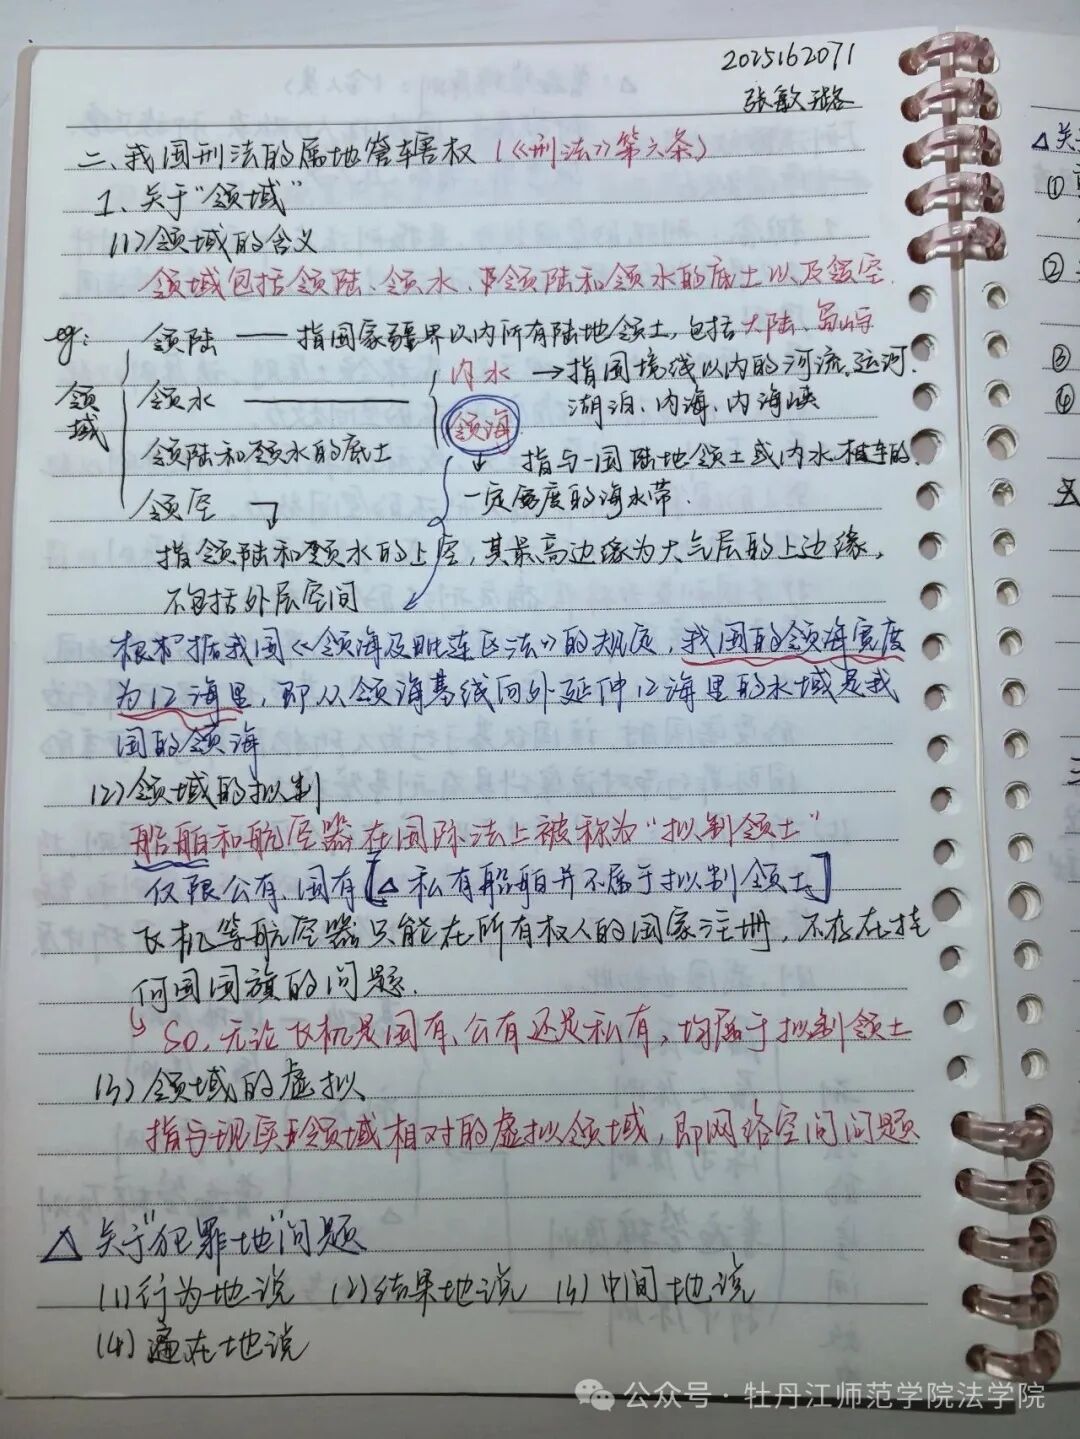 2025162071
张敏璐
二、我国刑法的属地管辖权(《刑法》第六条)
1、关于“领域”
(1)领域的含义
领域包括领陆、领水、领陆和领水的底土以及领空.
eg:
领域
领陆 —— 指国家疆界以内所有陆地领土,包括大陆、岛屿
领水 —— 内水 → 指国境线以内的河流、运河.
湖泊、内海、内海峡
领海
领陆和领水的底土
↓ 指与一国陆地领土或内水相连的.
一定宽度的海水带.
领空
指领陆和领水的上空,其最高边缘为大气层的上边缘,
不包括外层空间
根据我国《领海及毗连区法》的规定,我国的领海宽度
为12海里,即从领海基线向外延伸12海里的水域是我
国的领海
(2)领域的拟制
船舶和航空器在国际法上被称为“拟制领土”
仅限公有、国有[△私有船舶并不属于拟制领土]
飞机等航空器只能在所有权人的国家注册,不存在挂
何国国旗的问题.
↳ So,无论飞机是国有、公有还是私有,均属于拟制领土
(3)领域的虚拟
指与现实领域相对的虚拟领域,即网络空间问题
△ 关于“犯罪地”问题
(1)行为地说 (2)结果地说 (3)中间地说
(4)遍在地说
△关
①
②
③
④
公众号·牡丹江师范学院法学院